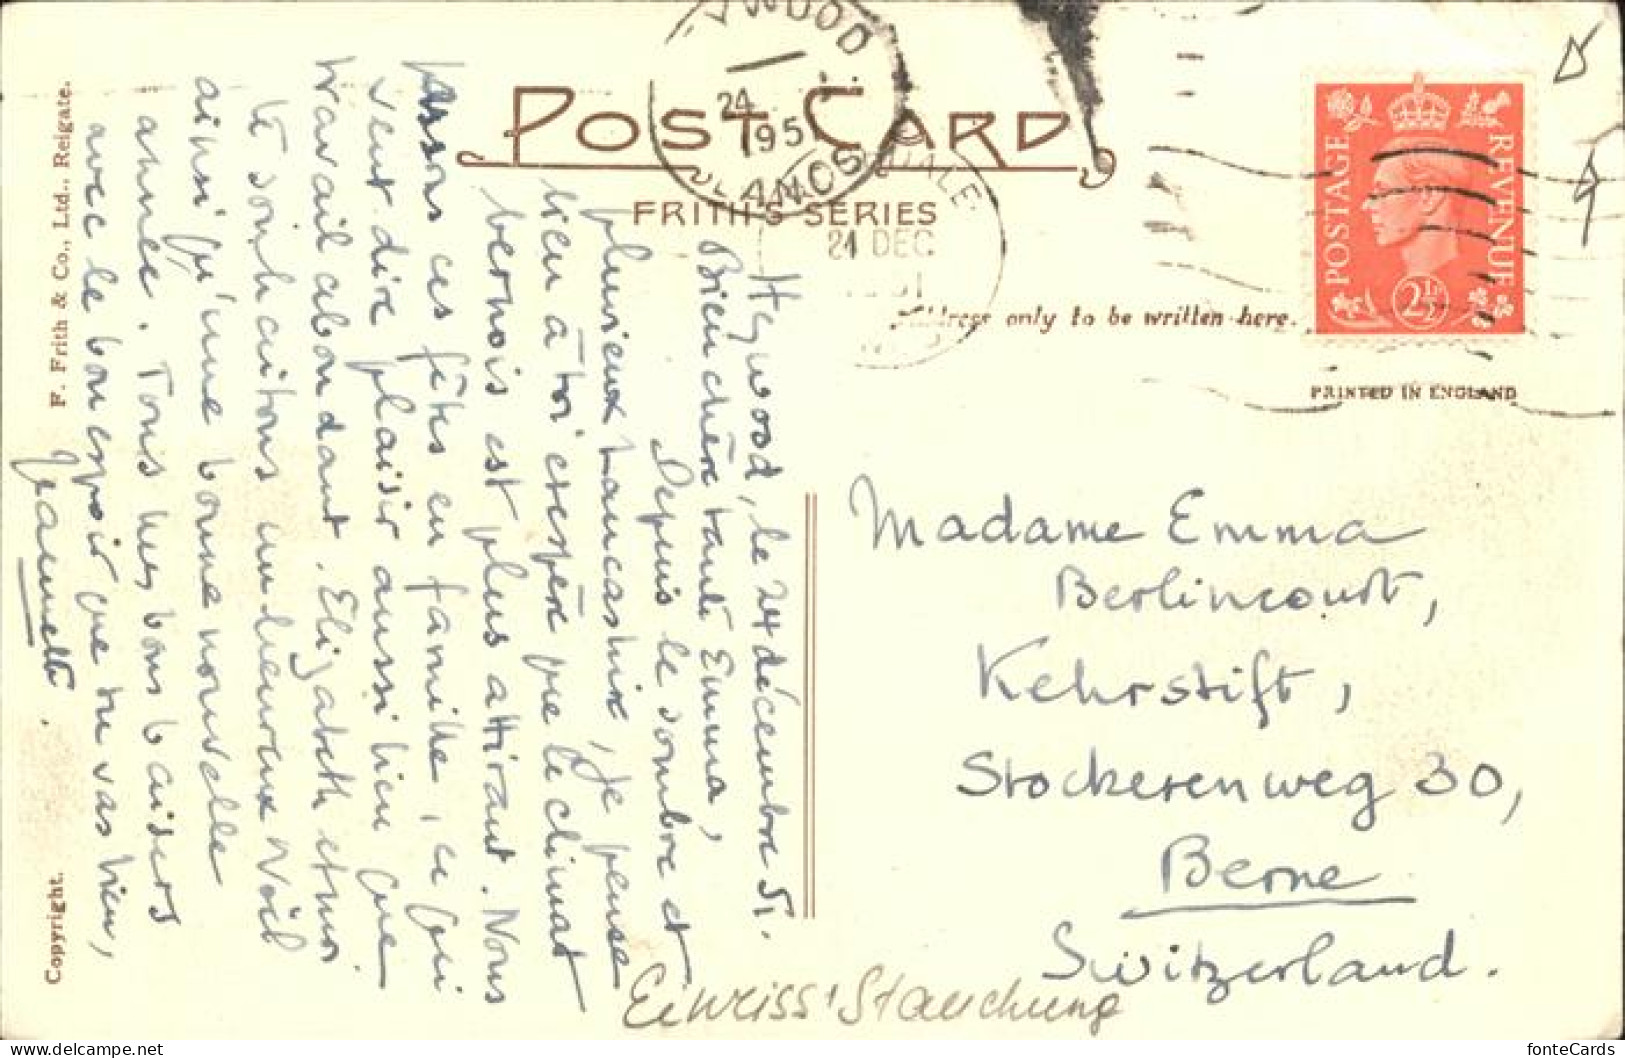 POST CARD
FRITH'S SERIES
WOOD
24
195
LANCS
DALE
24 DEC
Address only to be written here.
POSTAGE
REVENUE
2½
PRINTED IN ENGLAND
F. Frith & Co., Ltd., Reigate.
Copyright.
Heywood, le 24 décembre 51.
Bien chère tante Emma,
Depuis le sombre et
pluvieux Lancashire, je pense
bien à toi et espère que le climat
bernois est plus attirant. Nous
passons ces fêtes en famille, ce qui
veut dire plaisir aussi bien que
travail abondant. Elizabeth et moi
te souhaitons un heureux Noël
ainsi qu'une bonne nouvelle
année. Tous mes bons baisers
avec le bon espoir que tu vas bien,
Jeannette.
Madame Emma
Berlincourt,
Kehrstift,
Stockerenweg 30,
Berne
Switzerland.
Eiweiss Stauchung
fonteCards